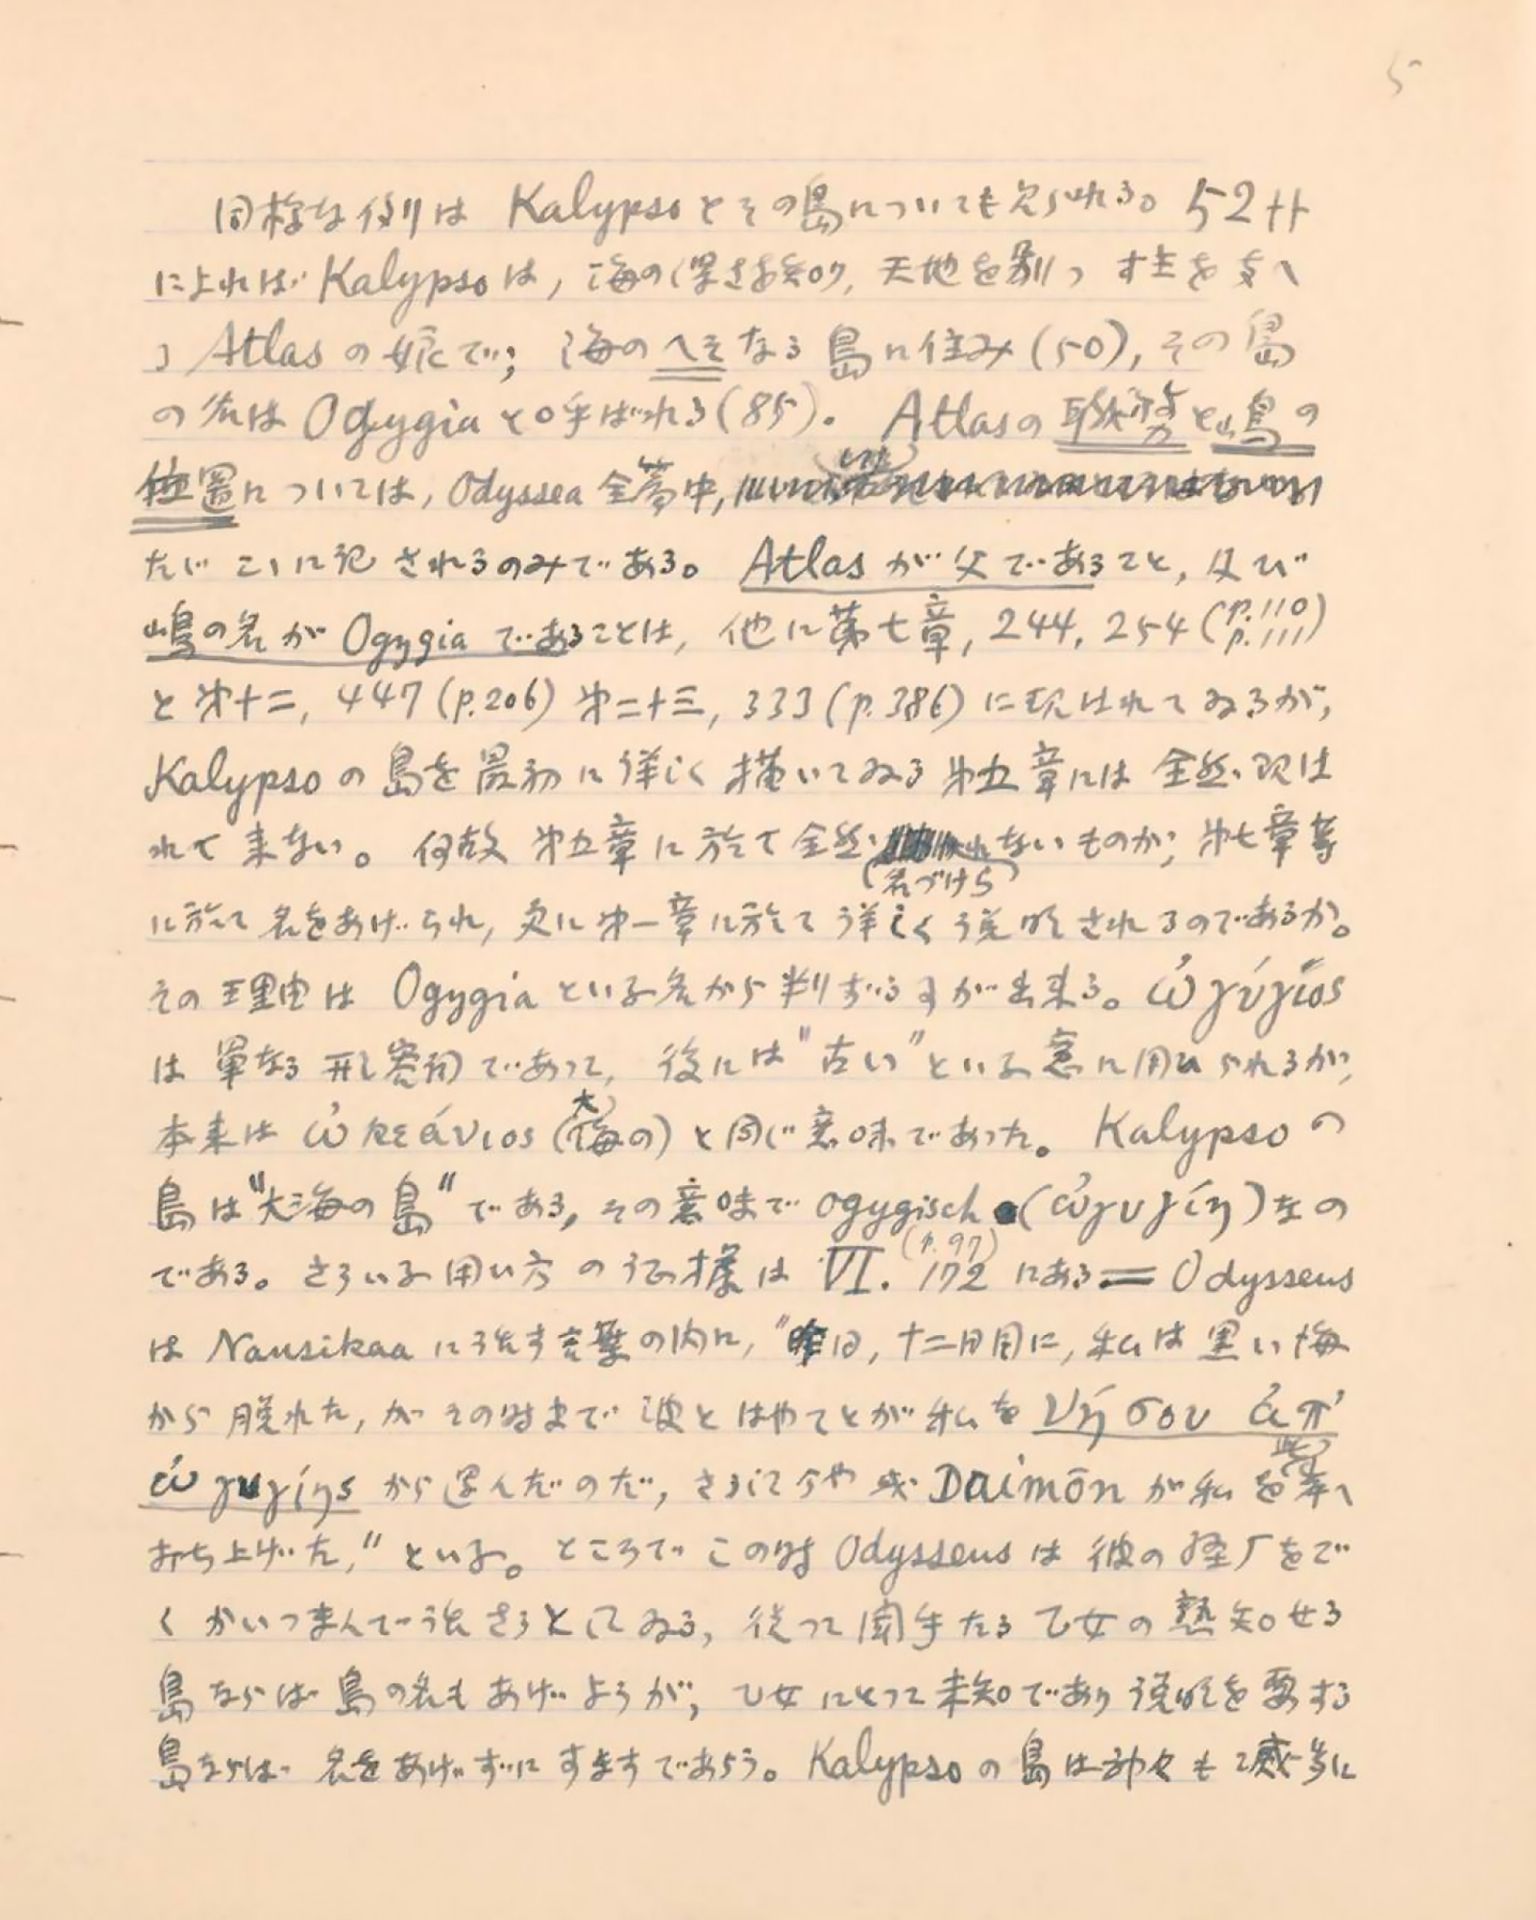 5
同様な例は Kalypsoとその島についても見られる。52ff
によれば Kalypsoは, 海の深さを知り, 天地を別つ 柱を支へ
る Atlas の娘で, 海のへそなる島に住み (50), その島
の名は Ogygia と呼ばれる (85). Atlasの職務と嶋の
位置については, Odyssea 全篇中,
たゞこゝに記されるのみである。Atlas が父であること, 及び
嶋の名が Ogygia であることは, 他に第七章, 244, 254 (p.110 p.111)
と第十二, 447 (p.206) 第二十三, 333 (p.386) に現はれてゐるが,
Kalypso の島を最初に詳しく描いてゐる 第五章には 全然現は
れて来ない。何故 第五章に於て全然名づけられないものが, 第七章等
に於て名をあげられ, 更に第一章に於て詳しく説明されるのであるか。
その理由は Ogygia といふ名から判ずる事が出来る。ὠγύγιος
は単なる形容詞であって, 後には "古い" といふ意に用ひられるが,
本来は ὠκεάνιος (大海の) と同じ意味であった。Kalypso の
島は "大海の島" である, その意味で ogygisch (ὠγυγίη) なの
である。さういふ用い方の証據は VI. 172 (p.97) にある = Odysseus
は Nausikaa に話す言葉の内に, "昨日, 十二日目に, 私は黒い海
から脱れた, がその時まで波とはやてとが私を νήσου ἀπ'
ὠγυγίης から運んだのだ, さうして今や或 Daimōn が私を此岸へ
おち上げた," といふ。ところでこの時 Odysseus は彼の経厂をご
くかいつまんで話さうとしてゐる, 従って聞手たる乙女の熟知せる
島ならば島の名もあげようが, 乙女にとって未知であり説明を要する
島ならば 名をあげずにすますであらう。Kalypso の島は神々も滅多に